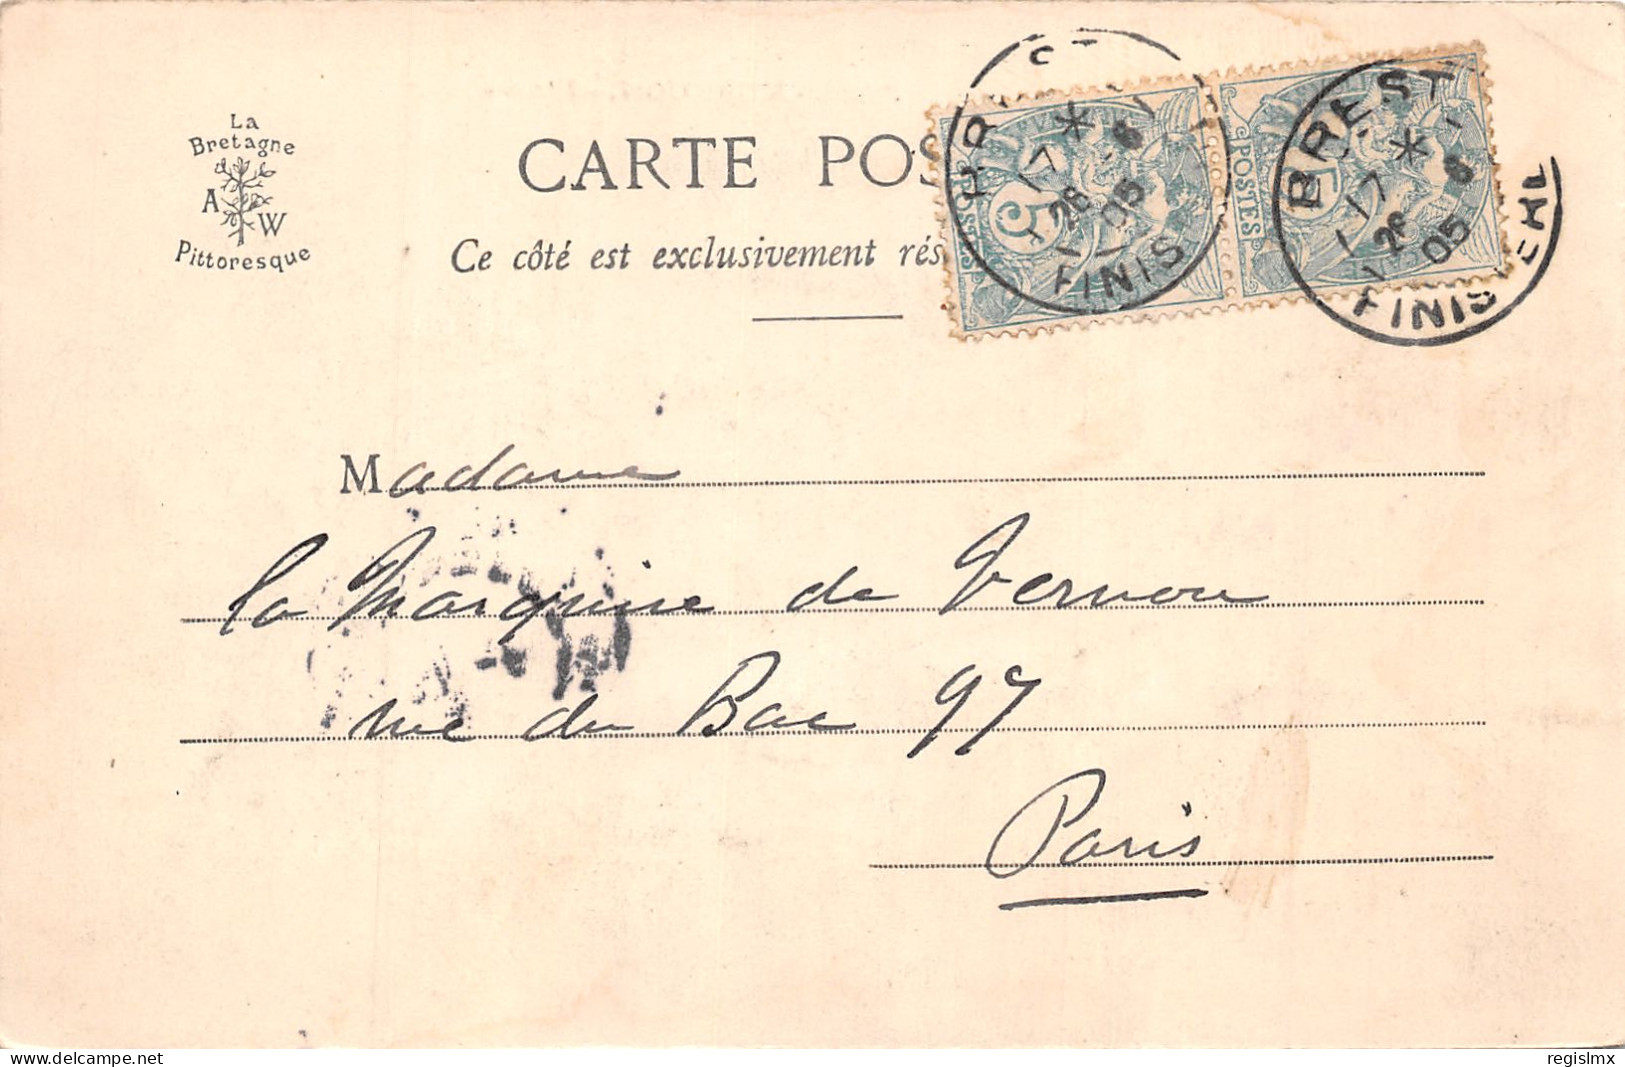 La
Bretagne
A W
Pittoresque
CARTE POS
Ce côté est exclusivement rés
POSTES
5
POSTES
5
17
26 -6
05
FINIS
BREST
17
26 -6
05
FINIS
Madame
la Marquise de Vernou
rue du Bac 97
Paris
delcampe.net
regislmx